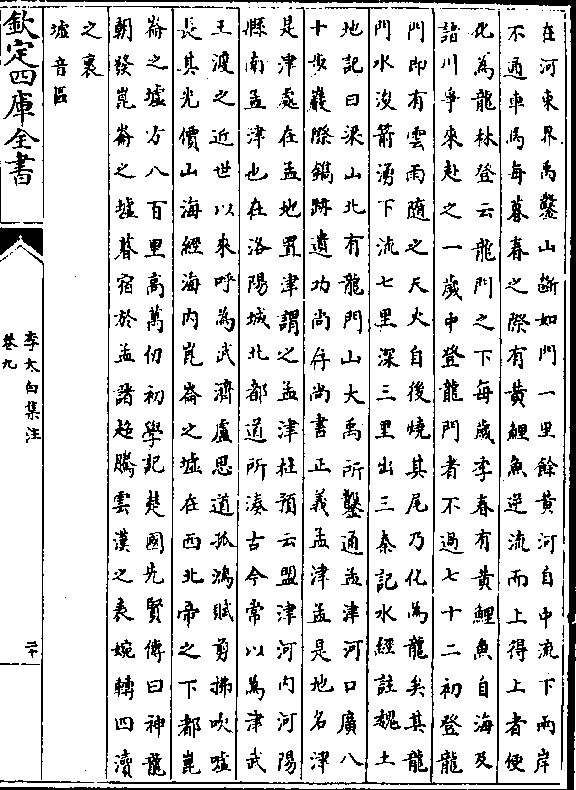 在河東界禹鑿山斷如門一里餘黄河自中流下兩岸
不通車馬每暮春之際有黄鯉魚逆流而上得上者便
化為龍林登云龍門之下每歲季春有黄鯉魚自海及
諸川爭來赴之一歲中登龍門者不過七十二初登龍
門即有雲雨隨之天火自後燒其尾乃化為龍矣其龍
門水浚箭湧下流七里深三里出三秦記水經註魏土
地記曰梁山北有龍門山大禹所鑿通孟津河口廣八
十步巖際鐫跡遺功尚存尚書正義孟津孟是地名津
是津處在孟地置津謂之孟津杜預云盟津河内河陽
縣南孟津也在洛陽城北都道所湊古今常以為津武
王渡之近世以來呼為武濟盧思道孤鴻賦剪拂吹噓
長其光價山海經海内崑崙之墟在西北帝之下都崑
崙之墟方八百里高萬仞初學記楚國先賢傳曰神龍
朝發崑崙之墟暮宿於孟諸超騰雲漢之表婉轉四瀆
之裏
墟音區
欽定四庫全書
李太白集注
卷九
二十